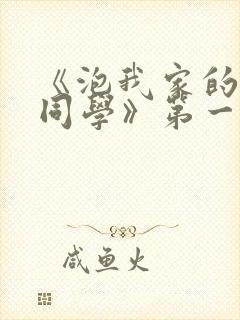 《泡我家的
同學》第一
咸鱼火